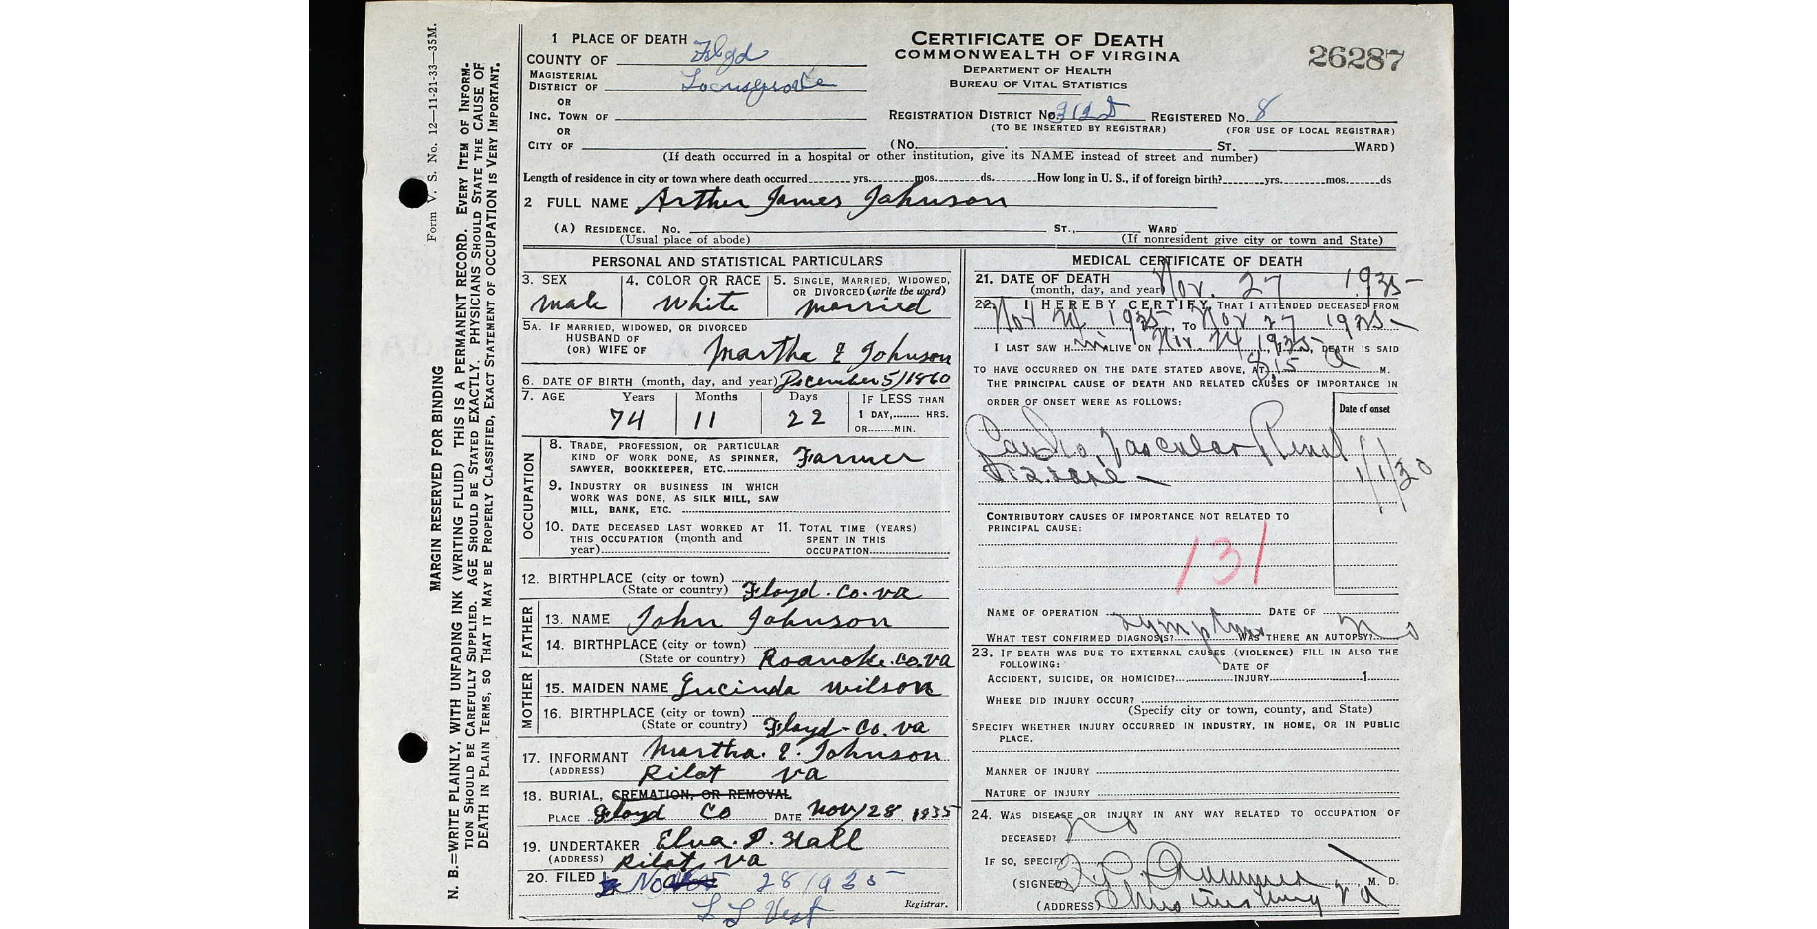 Form V. S. No. 12—11-21-33—35M.
MARGIN RESERVED FOR BINDING
N. B.=WRITE PLAINLY, WITH UNFADING INK (WRITING FLUID) THIS IS A PERMANENT RECORD. EVERY ITEM OF INFORM-
TION SHOULD BE CAREFULLY SUPPLIED. AGE SHOULD BE STATED EXACTLY. PHYSICIANS SHOULD STATE THE CAUSE OF
DEATH IN PLAIN TERMS, SO THAT IT MAY BE PROPERLY CLASSIFIED. EXACT STATEMENT OF OCCUPATION IS VERY IMPORTANT.
CERTIFICATE OF DEATH
COMMONWEALTH OF VIRGINIA
DEPARTMENT OF HEALTH
BUREAU OF VITAL STATISTICS
26287
1 PLACE OF DEATH
COUNTY OF Floyd
MAGISTERIAL
DISTRICT OF Locusgrove
OR
INC. TOWN OF
OR
CITY OF
REGISTRATION DISTRICT No. REGISTERED No. 8
(TO BE INSERTED BY REGISTRAR) (FOR USE OF LOCAL REGISTRAR)
(No. ST. WARD)
(If death occurred in a hospital or other institution, give its NAME instead of street and number)
Length of residence in city or town where death occurred yrs. mos. ds. How long in U. S., if of foreign birth? yrs. mos. ds
2 FULL NAME Arthur James Johnson
(A) RESIDENCE. No. ST., WARD
(Usual place of abode) (If nonresident give city or town and State)
PERSONAL AND STATISTICAL PARTICULARS
3. SEX male
4. COLOR OR RACE White
5. SINGLE, MARRIED, WIDOWED,
OR DIVORCED (write the word)
married
5A. IF MARRIED, WIDOWED, OR DIVORCED
HUSBAND OF
(OR) WIFE OF Martha E Johnson
6. DATE OF BIRTH (month, day, and year) December 5/1860
7. AGE Years Months Days IF LESS THAN
74 11 22 1 DAY, HRS.
OR MIN.
OCCUPATION
8. TRADE, PROFESSION, OR PARTICULAR
KIND OF WORK DONE, AS SPINNER,
SAWYER, BOOKKEEPER, ETC. Farmer
9. INDUSTRY OR BUSINESS IN WHICH
WORK WAS DONE, AS SILK MILL, SAW
MILL, BANK, ETC.
10. DATE DECEASED LAST WORKED AT
THIS OCCUPATION (month and
year)
11. TOTAL TIME (YEARS)
SPENT IN THIS
OCCUPATION
12. BIRTHPLACE (city or town)
(State or country) Floyd. Co. va
FATHER
13. NAME John Johnson
14. BIRTHPLACE (city or town)
(State or country) Roanoke. co. va
MOTHER
15. MAIDEN NAME Lucinda Wilson
16. BIRTHPLACE (city or town)
(State or country) Floyd - Co. va
17. INFORMANT Martha. E. Johnson
(ADDRESS) Pilot va
18. BURIAL, CREMATION, OR REMOVAL
PLACE Floyd Co DATE Nov/28 1935
19. UNDERTAKER Elva. P. Hall
(ADDRESS) Pilot, va
20. FILED Nov 28 1935
L L Vest
Registrar.
MEDICAL CERTIFICATE OF DEATH
21. DATE OF DEATH
(month, day, and year) Nov. 27 1935
22. I HEREBY CERTIFY, THAT I ATTENDED DECEASED FROM
Nov 1935, TO Nov 27 1935
I LAST SAW H im ALIVE ON Nov. 1935, DEATH S SAID
TO HAVE OCCURRED ON THE DATE STATED ABOVE, AT 8.15 a M.
THE PRINCIPAL CAUSE OF DEATH AND RELATED CAUSES OF IMPORTANCE IN
ORDER OF ONSET WERE AS FOLLOWS:
Date of onset
Cardio Vascular Renal
disease 1/1/30
CONTRIBUTORY CAUSES OF IMPORTANCE NOT RELATED TO
PRINCIPAL CAUSE:
131
NAME OF OPERATION DATE OF
WHAT TEST CONFIRMED DIAGNOSIS? Symptoms WAS THERE AN AUTOPSY? No
23. IF DEATH WAS DUE TO EXTERNAL CAUSES (VIOLENCE) FILL IN ALSO THE
FOLLOWING: DATE OF
ACCIDENT, SUICIDE, OR HOMICIDE? INJURY 1
WHERE DID INJURY OCCUR?
(Specify city or town, county, and State)
SPECIFY WHETHER INJURY OCCURRED IN INDUSTRY, IN HOME, OR IN PUBLIC
PLACE.
MANNER OF INJURY
NATURE OF INJURY
24. WAS DISEASE OR INJURY IN ANY WAY RELATED TO OCCUPATION OF
DECEASED? No
IF SO, SPECIFY
(SIGNED) M. D.
(ADDRESS) Christiansburg Va